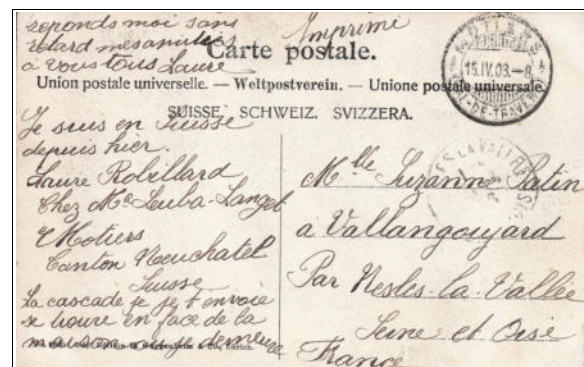 reponds moi sans
retard mes amitiés
à vous tous Laure
Imprimé
Carte postale.
Union postale universelle. — Weltpostverein. — Unione postale universale.
SUISSE. SCHWEIZ. SVIZZERA.
MOTIERS
15.IV.03.-8
VAL-DE-TRAVERS
Je suis en Suisse
depuis hier.
Laure Robillard
Chez Me Leuba-Langel
Motiers
Canton Neuchatel
Suisse
La cascade que je t'envoie
se trouve en face de la
maison ou je demeure
NESLES LA VALLÉE
Mlle Suzanne Patin
a Vallangoujard
Par Nesles-la-Vallée
Seine et Oise
France